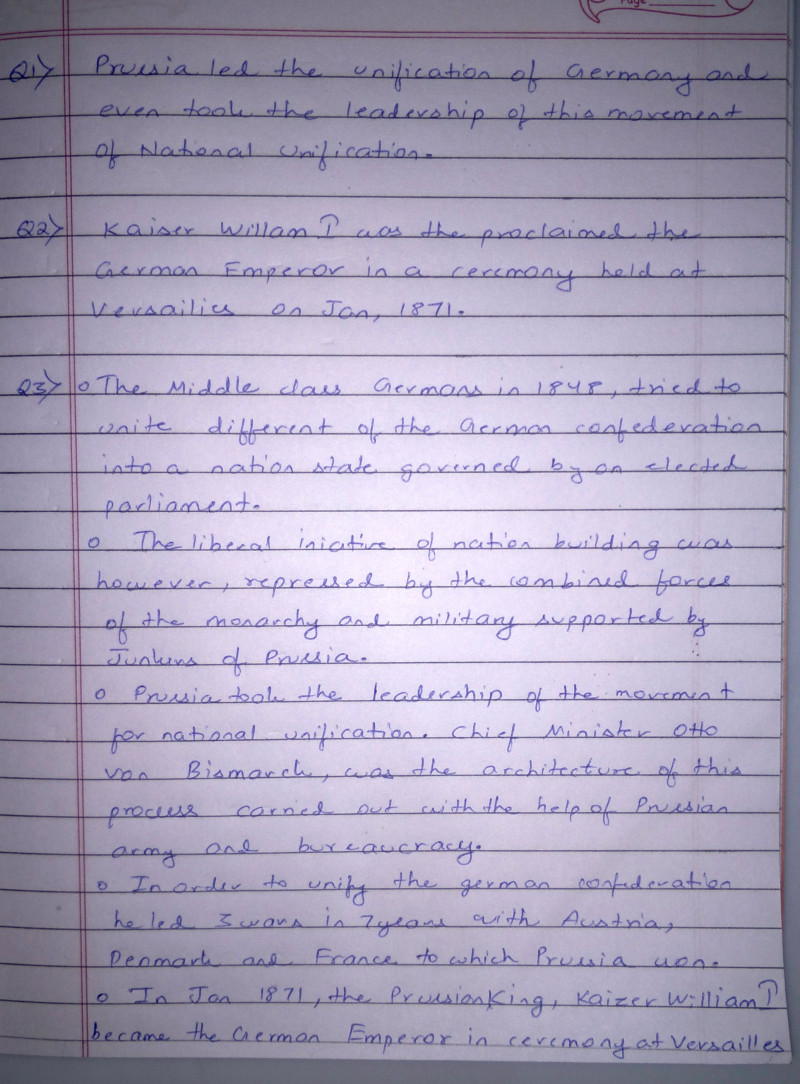 Page
Q1> Prussia led the unification of Germany and
even took the leadership of this movement
of National Unification.
Q2> Kaiser Willam I was the proclaimed the
German Emperor in a ceremony held at
Versailies on Jan, 1871.
Q3> o The Middle class Germans in 1848, tried to
unite different of the German confederation
into a nation state governed by an elected
parliament.
o The liberal iniative of nation building was
however, repressed by the combined forces
of the monarchy and military supported by
Junkers of Prussia.
o Prussia took the leadership of the movement
for national unification. Chief Minister Otto
von Bismarck, was the architecture of this
process carried out with the help of Prussian
army and bureaucracy.
o In order to unify the german confederation
he led 3 wars in 7 years with Austria,
Denmark and France to which Prussia won.
o In Jan 1871, the Prussian King, Kaizer William I
became the German Emperor in ceremony at Versailles